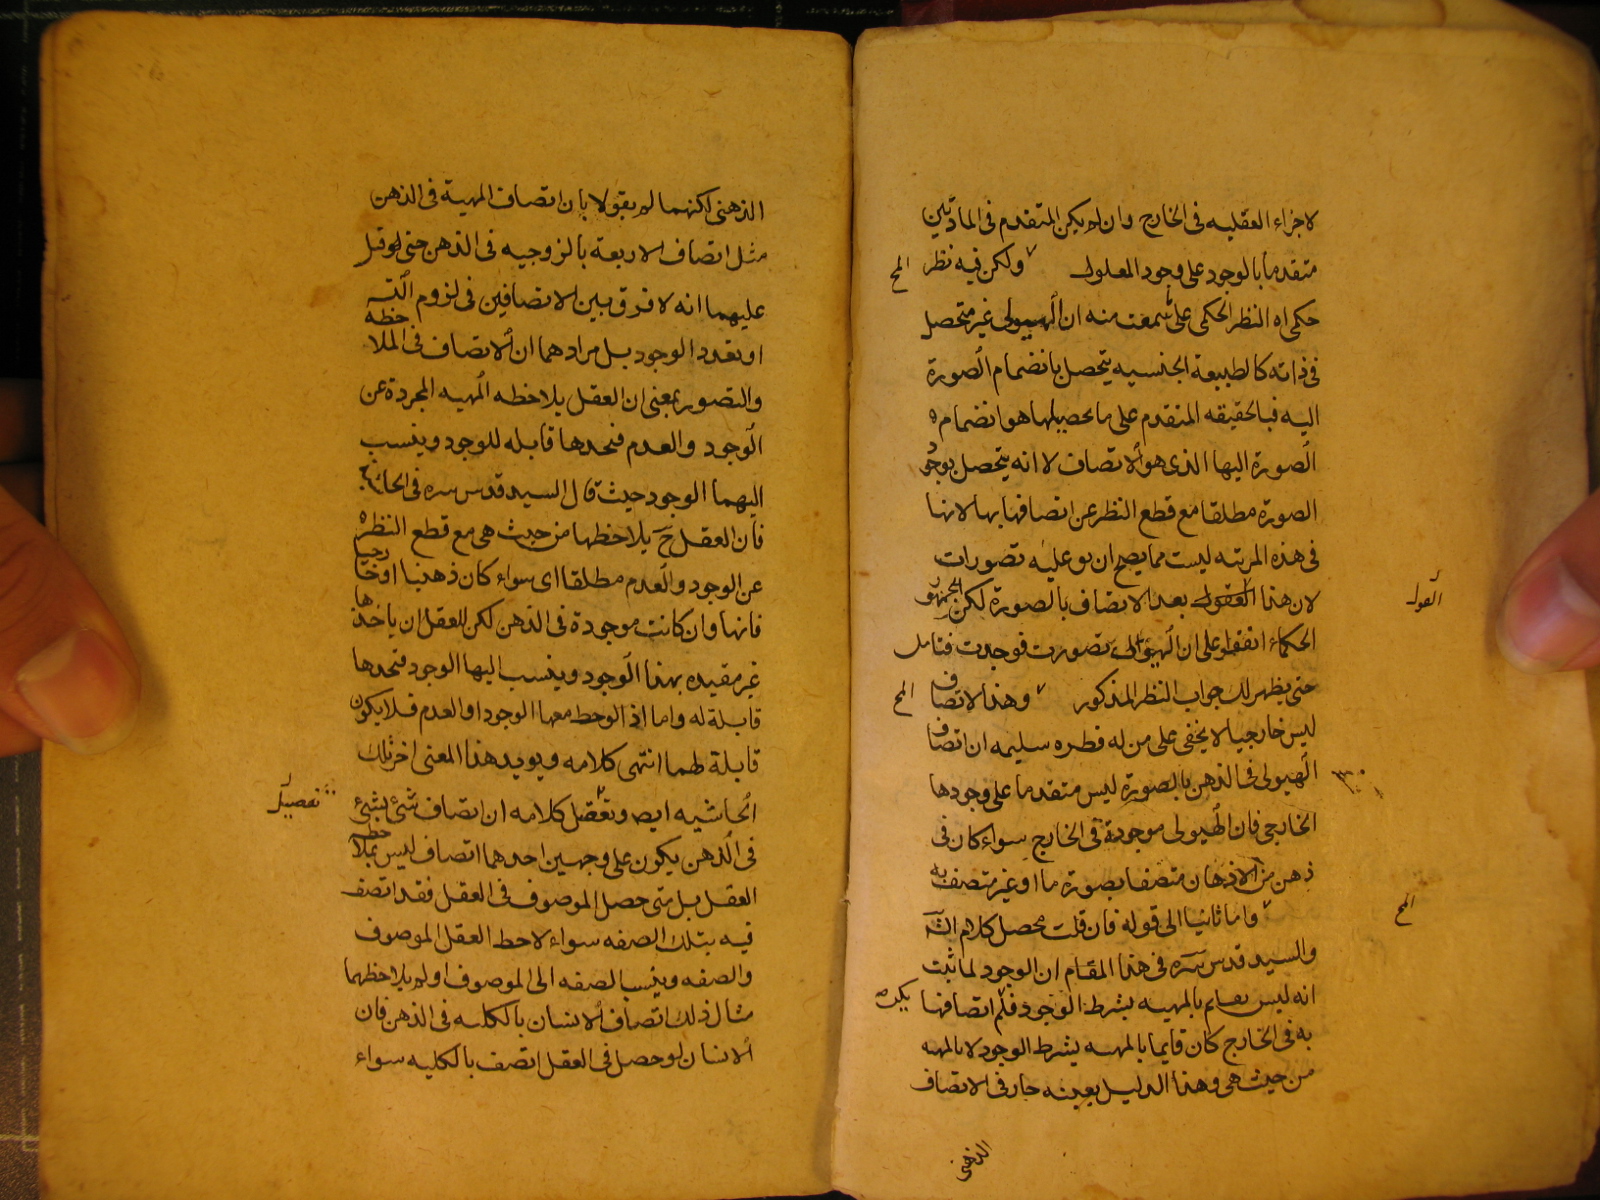 لاجزاء العقليه فى الخارج وان لم يكن المتقدم فى المادتين
متقدما بالوجود على وجود المعلول ولكن فيه نظر الخ
النظر الحكمى على سمعت منه ان الهيولى غير متحصل
فى ذاته كالطبيعة الجنسيه يتحصل بانضمام الصورة
اليه فبالحقيقه المتقدم على ما يحصيلها هو انضمام
الصورة اليها الذى هو الاتصاف لا انه يتحصل بوجود
الصورة مطلقا مع قطع النظر عن اتصافها بها لانها
فى هذه المرتبه ليست مما يصح ان عليه تصورات
لان هذا القول بعد الاتصاف بالصورة لكن الجمهور
القول
الحكماء اتفقوا على ان الهيولى تصورت فوجدت فتامل
حتى يظهر لك جواب النظر المذكور وهذا الاتصاف الخ
ليس خارجيا لا يخفى على من له فطره سليمه ان اتصاف
الهيولى فى الذهن بالصورة ليس متقدما على وجودها
الخارجى فان الهيولى موجودة فى الخارج سواء كان فى
ذهن من الاذهان متصفا بصورة ما او غير متصف به
واما ثانيا الى قوله فان قلت محصل كلام الش الخ
والسيد قدس سره فى هذا المقام ان الوجود لما ثبت
انه ليس بقايم بالمهيه بشرط الوجود فلم اتصافها يكن
به فى الخارج كان قايما بالمهيه بشرط الوجود لا بالمهيه
من حيث هى وهذا الدليل بعينه جار فى الاتصاف
الذهنى
الذهنى لكنهما لم يقولا بان اتصاف المهية فى الذهن
مثل اتصاف الاربعة بالزوجيه فى الذهن حتى لو قيل
عليهما انه لا فرق بين الاتصافين فى لزوم التس
او تعدد الوجود بل مرادهما ان الاتصاف فى الملاحظه
والتصور بمعنى ان العقل يلاحظه المهيه المجردة عن
الوجود والعدم فنجدها قابله للوجود وينسب
اليهما الوجود حيث قال السيد قدس سره فى الحاشية
فان العقل ح يلاحظها من حيث هى مع قطع النظر
عن الوجود والعدم مطلقا اى سواء كان ذهنيا او خارجيا
فانها وان كانت موجودة فى الذهن لكن للعقل ان ياخذها
غير مقيده بهذا الوجود وينسب اليها الوجود فنجدها
قابلة له واما اذا لوحظ معها الوجود او العدم فلا يكون
قابلة لهما انتهى كلامه ويويد هذا المعنى اخر تلك
الحاشيه ايض وتفصيل كلامه ان اتصاف شئ بشئ
تفصيل
فى الذهن يكون على وجهين احدهما اتصاف ليس بملاحظه
العقل بل متى حصل الموصوف فى العقل فقد اتصف
فيه بتلك الصفه سواء لاحظ العقل الموصوف
والصفه وينسب الصفه الى الموصوف او لم يلاحظهما
مثال ذلك اتصاف الانسان بالكليه فى الذهن فان
الانسان لو حصل فى العقل اتصف بالكليه سواء